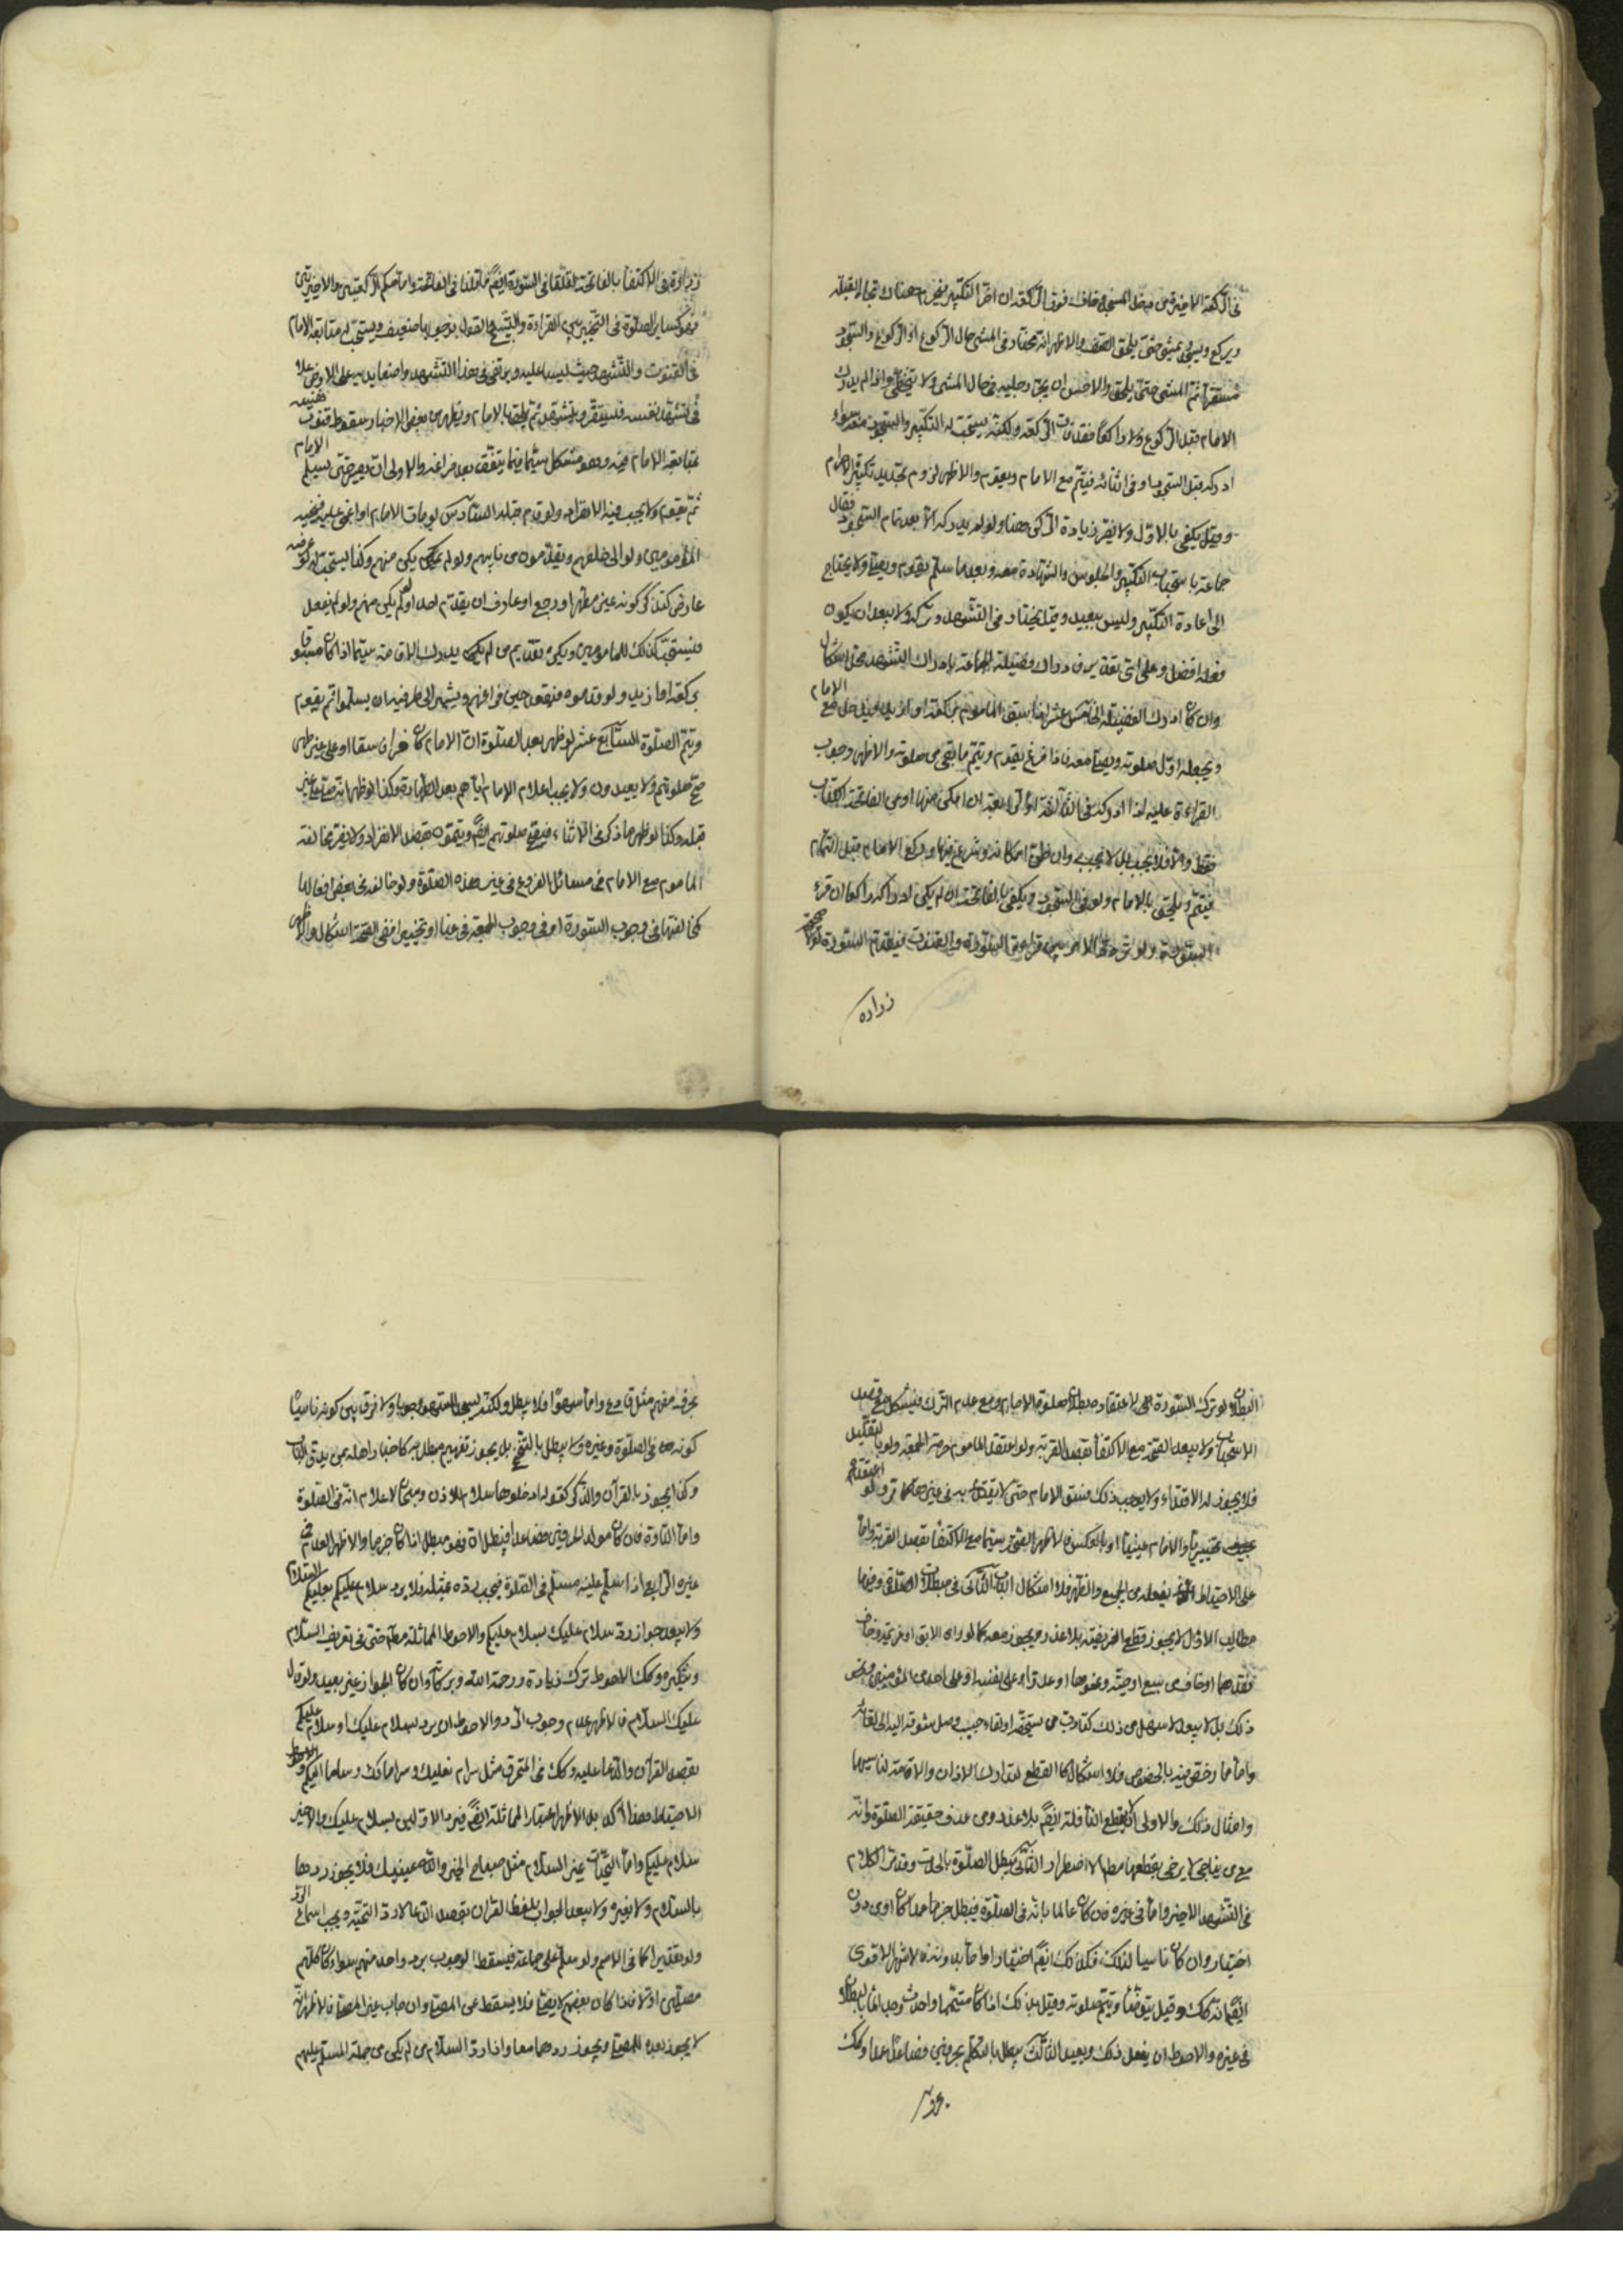 في الركعة الاخيرة من دخل المسجد فخاف فوت الركعة ان اخر التكبير فيحرم هناك تجاه القبلة
ويركع ويسجد ثم يمشي حتى يلحق الصف والاظهر انه مختار في المشي حال الركوع او الركوع والسجود
مستقرا ثم المشي حتى يلحق والاحسن ان يجر رجليه في حال المشي ولا يتخطى واذا لم يدرك
الامام قبل الركوع ولا راكعا فقد فات الركعة ولكنه يستحب له التكبير والسجود معه سواء
ادركه قبل السجود او في اثنائه فيتم مع الامام ويقوم والاظهر لزوم تجديد تكبيرة الاحرام
وقيل يكفي بالاول ولا يضر زيادة الركن هنا ولو لم يدركه الا بعد تمام السجود فقال
جماعة باستحباب التكبير والجلوس والشهادة معه وبعد ما سلم يقوم ويصلي ولا يحتاج
الى اعادة التكبير وليس ببعيد وقيل يختار في التشهد وتركه ولا يبعد ان يكون
فعله افضل وعلى اي تقدير ففي دراك فضيلة الجماعة بادراك التشهد محل اشكال
وان كان ادرك الفضيلة الخامس عشر اذا سبق المأموم بركعة او ازيد فيدخل مع الامام
ويجعله اول صلوته ويصلي معه فاذا فرغ يقوم ويتم ما بقي من صلوته والاظهر وجوب
القراءة عليه اذا ادركه في الثالثة او الرابعة ان امكن منها او من الفاتحة الكتاب
فقط والا فلا يجب بل لا يجب وان ظن امكانه وشرع فيها وركع الامام قبل التمام
فيتم ويلحق بالامام ولو في السجود ويكفي بالفاتحة ان لم يكن ادراكه راكعا ان قرء
السورة ولو الامر بين قراءة السورة والقنوت فيقدم السورة
زراره
زرارة في الاكتفا بالفاتحة في السورة ايضا ما قلنا في الفاتحة واما حكم الركعتين الاخيرتين
فهو كساير الصلوة في التخيير بين القراءة والتسبيح والقول بوجوبها ضعيف ويستحب له متابعة الامام
في القنوت والتشهد حيث ليسا عليه ويرتقي في هذا التشهد واضعا يديه على الارض
في تشهد نفسه فليستقر ويتشهد ثم يلحق بالامام ويظهر من بعض الاخبار سقوط قنوت نفسه
بمتابعة الامام فيه وهو مشكل سيما فيما يتفق بعد فراغه والاولى ان يصبر حتى يسلم الامام
ثم يقوم ولا يجب فيه الانفراد ولو قدم قبله السادس لو مات الامام او اغمي عليه فينيب
المأمومين ولو الى خلفهم ويقدمون من نابهم ولو لم يكن منهم وكذا يستحب له لو عرضه
عارض كتذكر كونه غير متطهر او رجع او عارف ان يقدم احدا ولو لم يكن منهم ولو لم يفعل
فيستحب كذلك للمأمومين ويكره تقديم من لم يدرك الاقامة سيما اذا كان مسبوقا
بركعة او ازيد ولو قدموه فيقعد حين فراغهم ويشير الى طرفيه ان يسلموا ثم يقوم
ويتم الصلوة السابع عشر لو ظهر بعد الصلوة ان الامام كان كافرا او فاسقا او على غير طهر
صح صلوتهم ولا يعيدون ولا يجب اعلام الامام اياهم بعد الطهارة وكذا لو ظهر انه صلى على غير
قبلة وكذا لو ظهر ما ذكر في الاثناء فيصح صلوتهم ايضا ويتمون بقصد الانفراد ولا يضر مخالفة
المأموم مع الامام في مسائل الفروع في غير هذه الصلوة ولو خالفه في بعض افعالها
كمخالفتهما في وجوب السورة او في وجوب الجمعة عينا او تخييرا ففي الصحة اشكال والاظهر
البطلان لو ترك السورة لاعتقاد بطلان صلوة الامام ومع عدم الترك فيشكل مع قصد
الاستحباب ولا يبعد الصحة مع الاكتفا بقصد القربة ولو اعتقد المأموم حرمة الجمعة ولو بالتقليد
فلا يجوز له الاقتداء ولا يوجب ذلك فسق الامام حتى لا يقتدى به في غيرها كما مر ولو اعتقد
تخييرا والامام عينا او بالعكس فالاظهر الصحة سيما مع الاكتفا بقصد القربة واما
على الاحتياط بفعله من الجمع والظهر فلا اشكال الباب الثاني في مبطلات الصلوة وفيها
مطالب الاول لا يجوز قطع الفريضة بلا عذر ويجوز معه كما لو راى الابق او غريمه وخاف
فقدهما او خاف من سبع او حية ونحوها او عدوا على نفسه او على احد من المؤمنين ونحو
ذلك بل لا يبعد لاسهل من ذلك كتاديب من يستحقه او لقاء حبيب وصل شوقه اليه الى لقائه
واما ما رخص فيه بالخصوص فلا اشكال كالقطع لتدارك الاذان والاقامة لناسيهما
وامثال ذلك والاولى ان لا يقطع النافلة ايضا بلا عذر ومن عرف حقيقة الصلوة وانه
مع من يناجي لا يرضى بقطعها مطلقا الا اضطرار الثاني يبطل الصلوة بالحدث وقد مر الكلام
في التشهد الاخير واما في غيره فان كان عالما بانه في الصلوة فيبطل جزما عمدا كان او من دون
اختيار وان كان ناسيا لذلك فكذلك ايضا اختيارا واما بدونه فالاشهر الاقوى
ايضا انه كذلك وقيل يتوضا ويتم صلوته وقيل بذلك اذا كان متيمما واحدث وجد الماء بالبطلان
في غيره والاحوط ان يفعل ذلك ويعيد الثالث يبطل بالتكلم بحرفين فصاعدا عمدا وكذا
بحرف
بحرف مفهم مثل ق و ع واما سهوا فلا يبطل ولكنه يسجد للسهو وجوبا ولا فرق بين كونه ناسيا
كونه في الصلوة وغيره ولا يبطل بالتنحنح بل يجوز تفهيم مطلب به كاخبار اهله من يدق الباب
وكذا يجوز بالقرآن والذكر كقوله ادخلوها بسلام للاذن وسبحان لاعلام انه في الصلوة
واما التاوه فان كان مولد لحرفين فصاعدا فيبطل ان فهو مبطل اذا كان حزما والاظهر العدم في
غيره الرابع اذا سلم عليه مسلم في الصلوة فيجب رده بمثله فلا يرد سلام عليكم بعليكم السلام
ولا يبعد جواز رد سلام عليك بسلام عليكم والاحوط المماثلة مطلقا حتى في تعريف السلام
وتنكيره وكذا الاحوط ترك زيادة ورحمة الله وبركاته وان كان الجواز غير بعيد ولو قال
عليك السلام فالاظهر عدم وجوب الرد والاحوط ان يرد بسلام عليك او سلام عليكم
بقصد القرآن والدعا عليه وكذا في المحرف مثل سرام بعليك وسراماك وساما اليكم والاحوط
الاحتياط فهذا آكد بل الاظهر اعتبار المماثلة ايضا فيرد الاولين بسلام عليك والاخير
سلام عليكم واما التحيات غير السلام مثل صباح الخير والله معينك فلا يجوز ردها
بالسلام ولا بغيره ولا يبعد الجواب بلفظ القرآن بقصد الدعا لا رد التحية ويجب اسماع الرد
ولو تقديرا كما في الاصم ولو سلم على جماعة فيسقط الوجوب برد واحد منهم سواء كان كلهم
مصلين او لا فاذا كان بعضهم لا يصلي فلا يسقط عن المصلي وان جاب غير المصلي فالاظهر انه
لا يجوز بعده للمصلي ويجوز ردهما معا واذا رد السلام من لم يكن من جملة المسلم عليهم